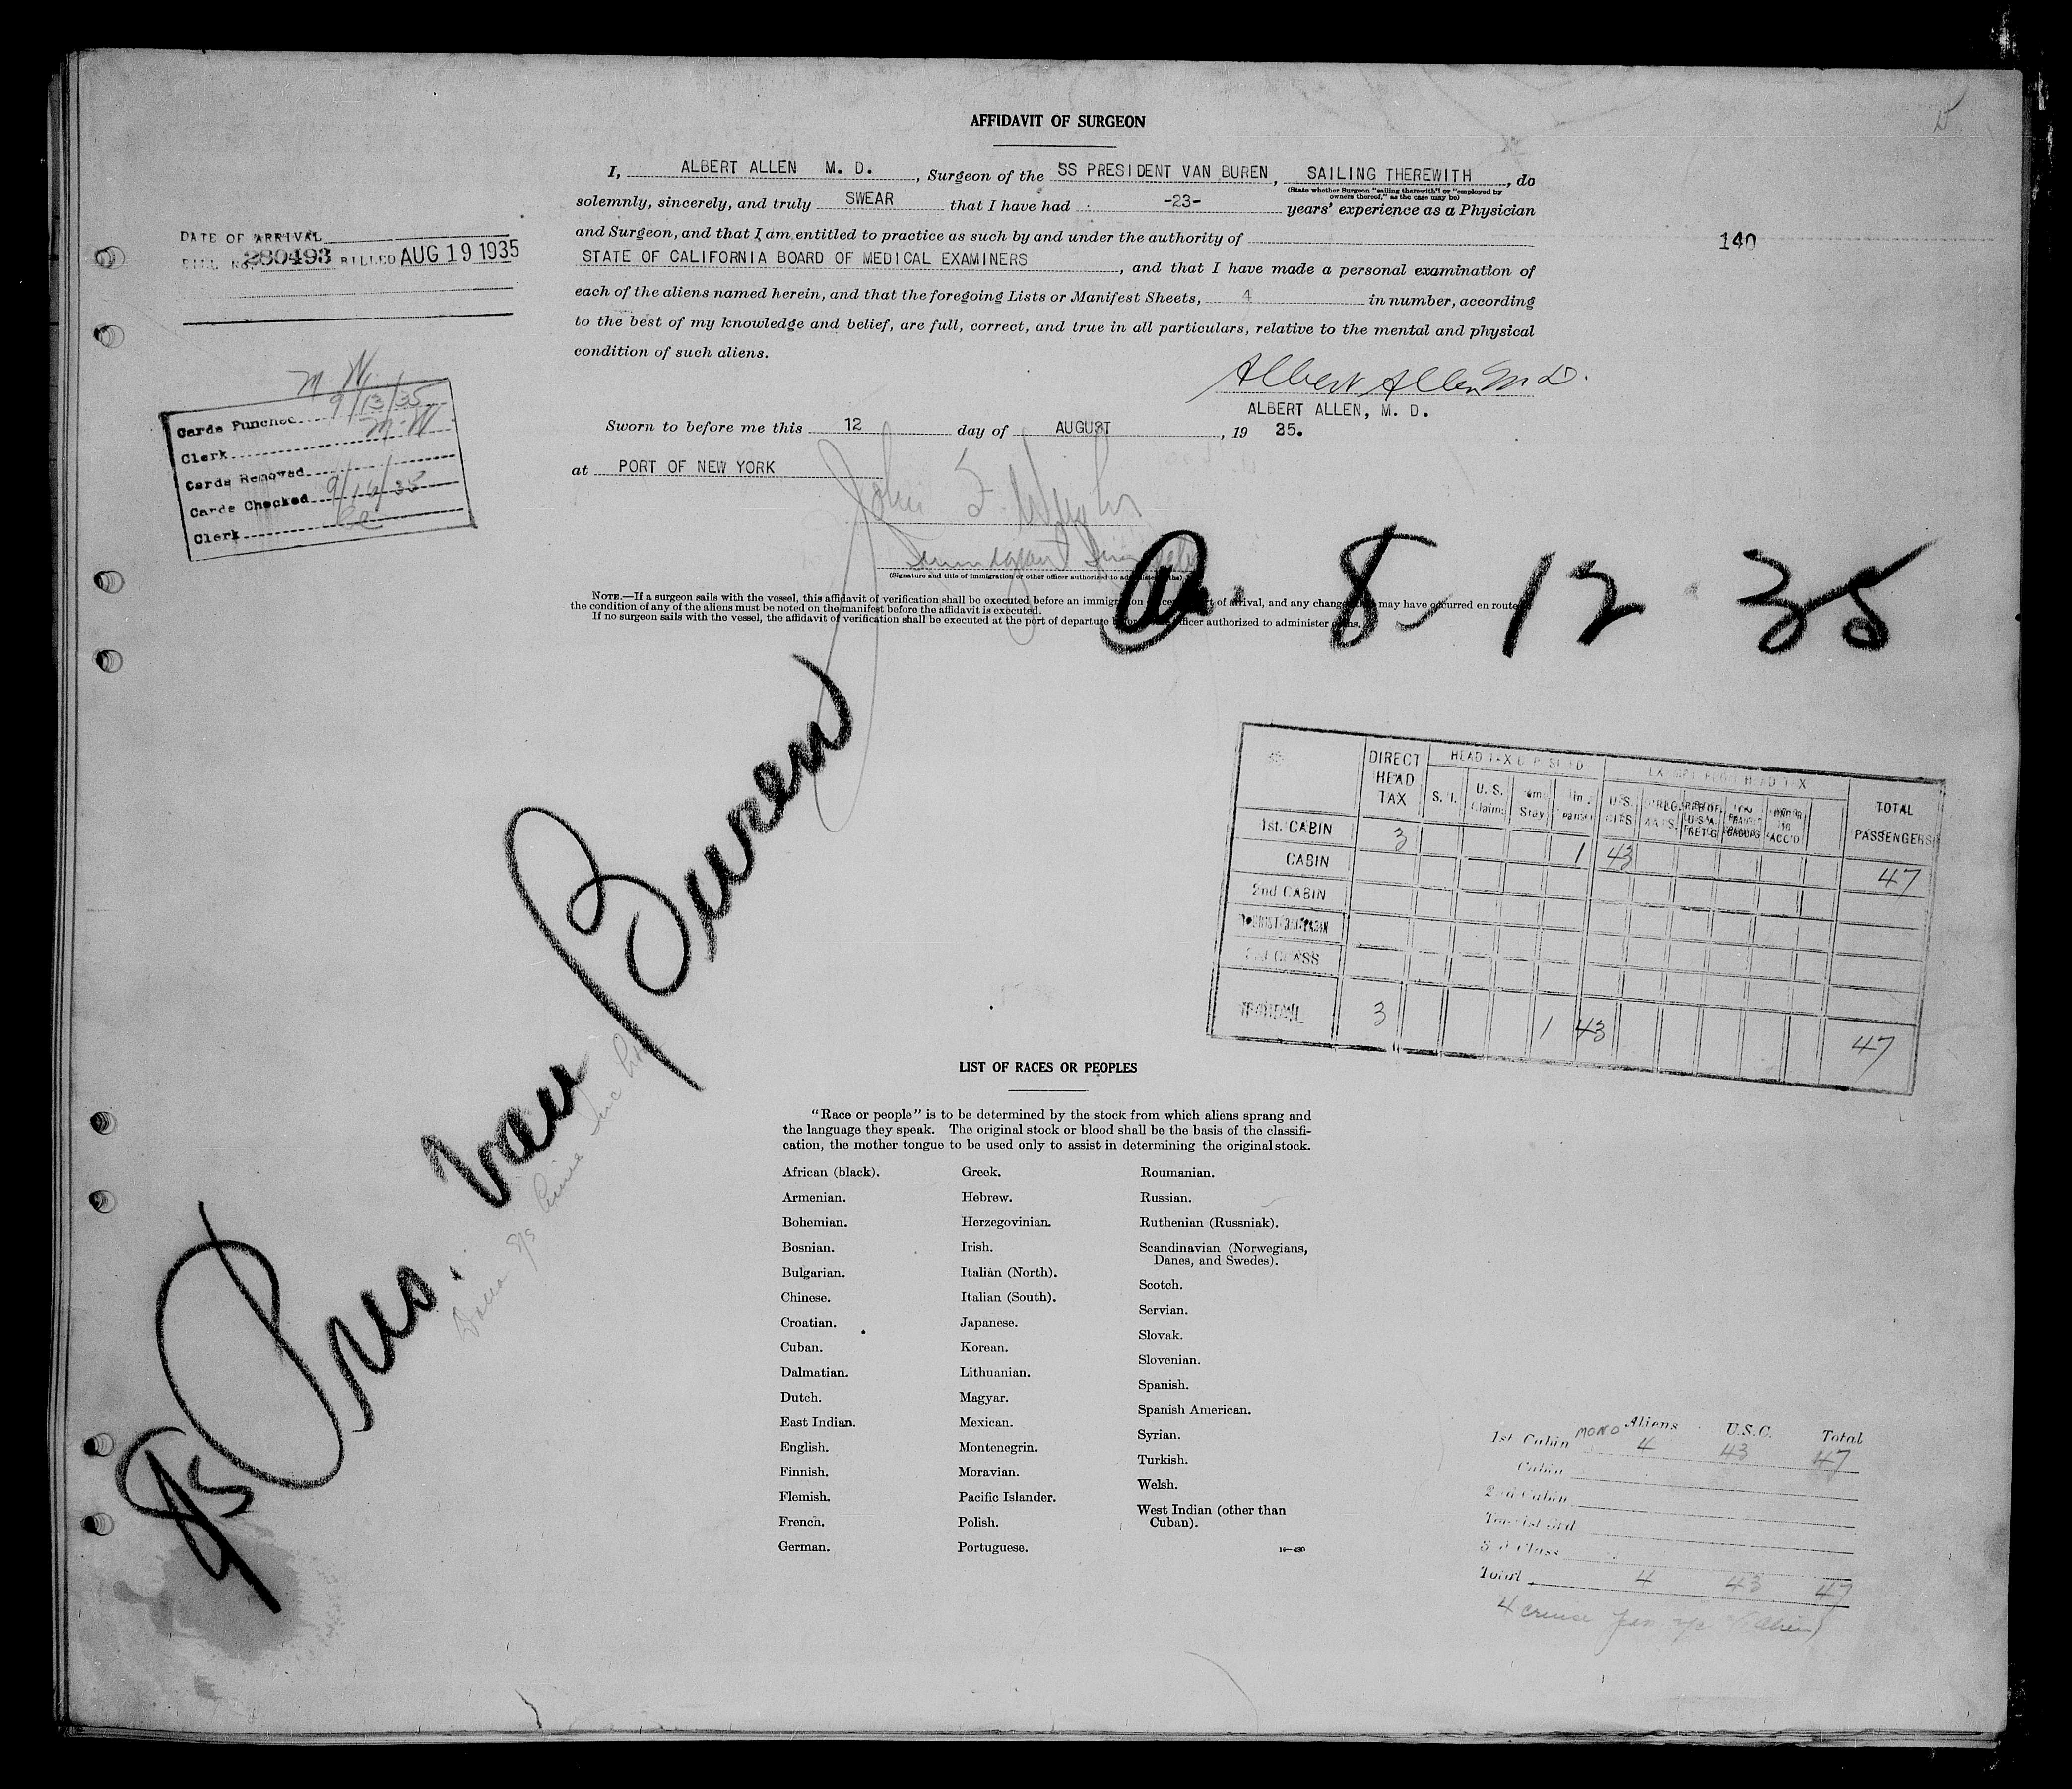 AFFIDAVIT OF SURGEON
I, ALBERT ALLEN M. D., Surgeon of the SS PRESIDENT VAN BUREN, SAILING THEREWITH, do
(State whether Surgeon "sailing therewith" or "employed by owners thereof," as the case may be)
solemnly, sincerely, and truly SWEAR that I have had -23- years' experience as a Physician
and Surgeon, and that I am entitled to practice as such by and under the authority of
STATE OF CALIFORNIA BOARD OF MEDICAL EXAMINERS, and that I have made a personal examination of
each of the aliens named herein, and that the foregoing Lists or Manifest Sheets, 4 in number, according
to the best of my knowledge and belief, are full, correct, and true in all particulars, relative to the mental and physical
condition of such aliens.
Albert Allen M D.
ALBERT ALLEN, M. D.
Sworn to before me this 12 day of AUGUST, 19 35.
at PORT OF NEW YORK
John
(Signature and title of immigration or other officer authorized to administer oaths)
NOTE.—If a surgeon sails with the vessel, this affidavit of verification shall be executed before an immigration officer of arrival, and any change may have occurred en route
the condition of any of the aliens must be noted on the manifest before the affidavit is executed.
If no surgeon sails with the vessel, the affidavit of verification shall be executed at the port of departure officer authorized to administer oaths.
DATE OF ARRIVAL
BILL No. 280493 BILLED AUG 19 1935
140
M W
Cards Punched 9/13/35
Clerk M W
Cards Removed
Cards Checked 9/16/35
Clerk
8-12 35
S/S Pres. Van Buren
DIRECT HEAD TAX
S. I.
U. S. Claims
U.S. CITS.
TOTAL PASSENGERS
1st. CABIN 3 1 43 47
CABIN
2nd CABIN
3rd CLASS
3 1 43 47
LIST OF RACES OR PEOPLES
"Race or people" is to be determined by the stock from which aliens sprang and
the language they speak. The original stock or blood shall be the basis of the classifi-
cation, the mother tongue to be used only to assist in determining the original stock.
African (black).
Armenian.
Bohemian.
Bosnian.
Bulgarian.
Chinese.
Croatian.
Cuban.
Dalmatian.
Dutch.
East Indian.
English.
Finnish.
Flemish.
French.
German.
Greek.
Hebrew.
Herzegovinian.
Irish.
Italian (North).
Italian (South).
Japanese.
Korean.
Lithuanian.
Magyar.
Mexican.
Montenegrin.
Moravian.
Pacific Islander.
Polish.
Portuguese.
Roumanian.
Russian.
Ruthenian (Russniak).
Scandinavian (Norwegians,
Danes, and Swedes).
Scotch.
Servian.
Slovak.
Slovenian.
Spanish.
Spanish American.
Syrian.
Turkish.
Welsh.
West Indian (other than
Cuban).
Aliens U.S.C. Total
1st Cabin MONO 4 43 47
Cabin
2nd Cabin
Tourist 3rd
3rd Class
Total 4 43 47
4 cruise